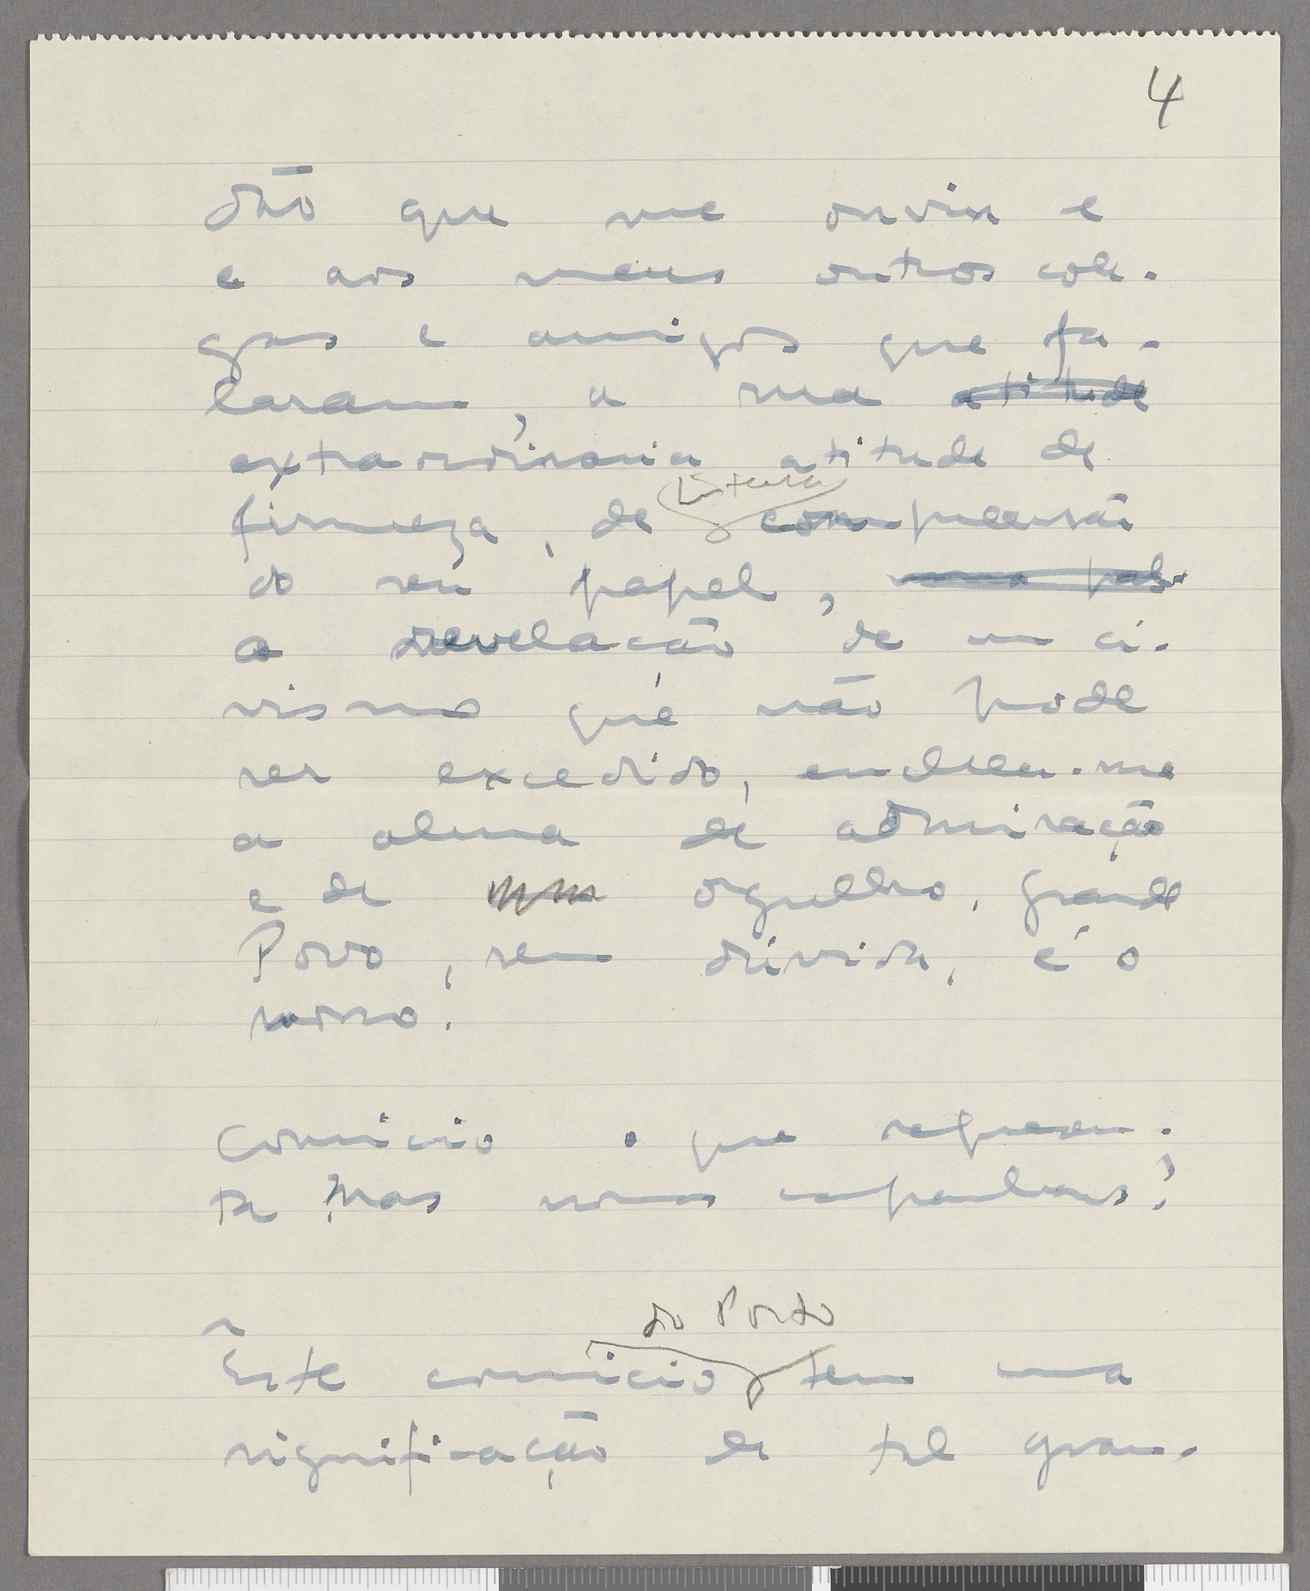 4
dão que me ouviu e
e aos meus outros cole-
gas e amigos que fa-
laram, a sua atitude
extraordinaria atitude de
inteira
firmeza, de compreensão
do seu papel,
a revelação de um ci-
vismo que não pode
ser excedido, enchem-me
a alma de admiração
e de orgulho, grande
Povo, sem dúvida, é o
nosso!
Comicio o que represen-
ta Mas nomes
do Porto
Este comicio tem uma
significação de tal gran-